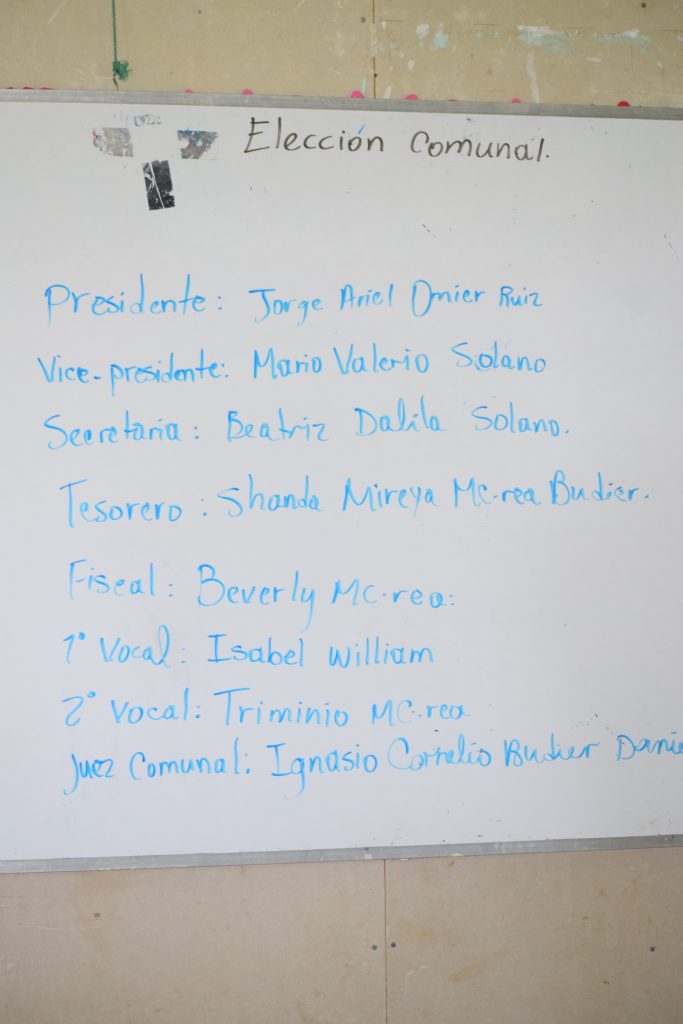 Elección Comunal.
Presidente: Jorge Ariel Omier Ruiz
Vice-presidente: Mario Valerio Solano
Secretaria: Beatriz Dalila Solano.
Tesorero: Shanda Mireya Mc.rea Budier.
Fiscal: Beverly Mc.rea:
1° Vocal: Isabel William
2° Vocal: Triminio Mc.rea
Juez Comunal: Ignasio Cornelio Budier